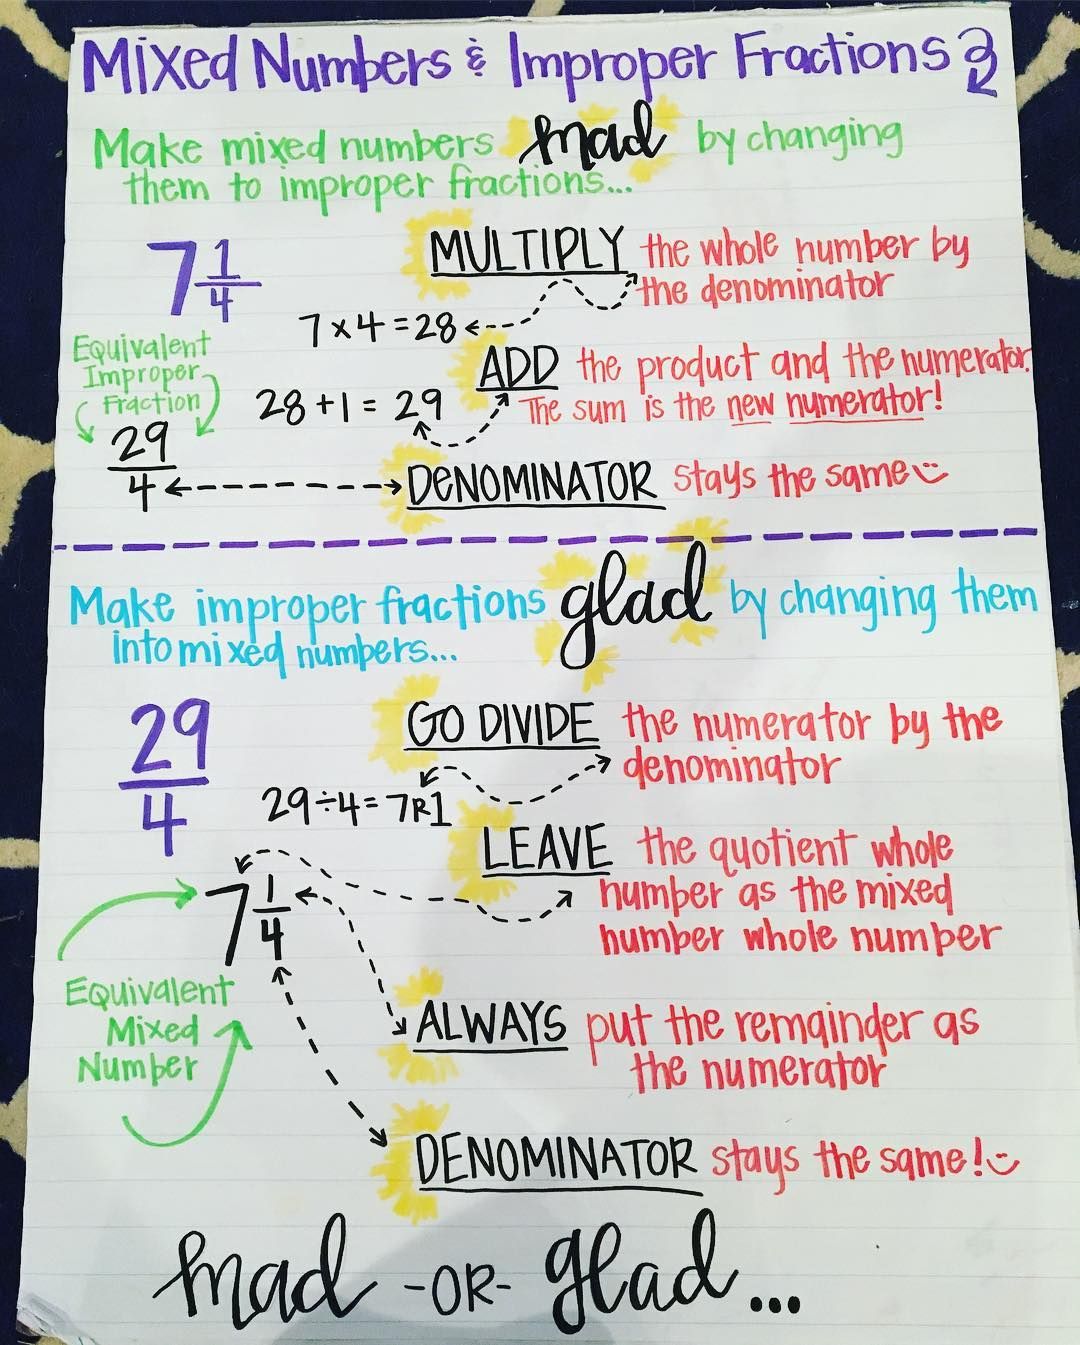 Mixed Numbers & Improper Fractions
Make mixed numbers mad by changing
them to improper fractions...
7 1/4
MULTIPLY the whole number by
the denominator
7 x 4 = 28
Equivalent
Improper
Fraction
ADD the product and the numerator.
28 + 1 = 29
The sum is the new numerator!
29/4
DENOMINATOR stays the same
Make improper fractions glad by changing them
into mixed numbers...
29/4
GO DIVIDE the numerator by the
denominator
29 ÷ 4 = 7R1
LEAVE the quotient whole
number as the mixed
number whole number
7 1/4
Equivalent
Mixed
Number
ALWAYS put the remainder as
the numerator
DENOMINATOR stays the same!
mad -OR- glad...